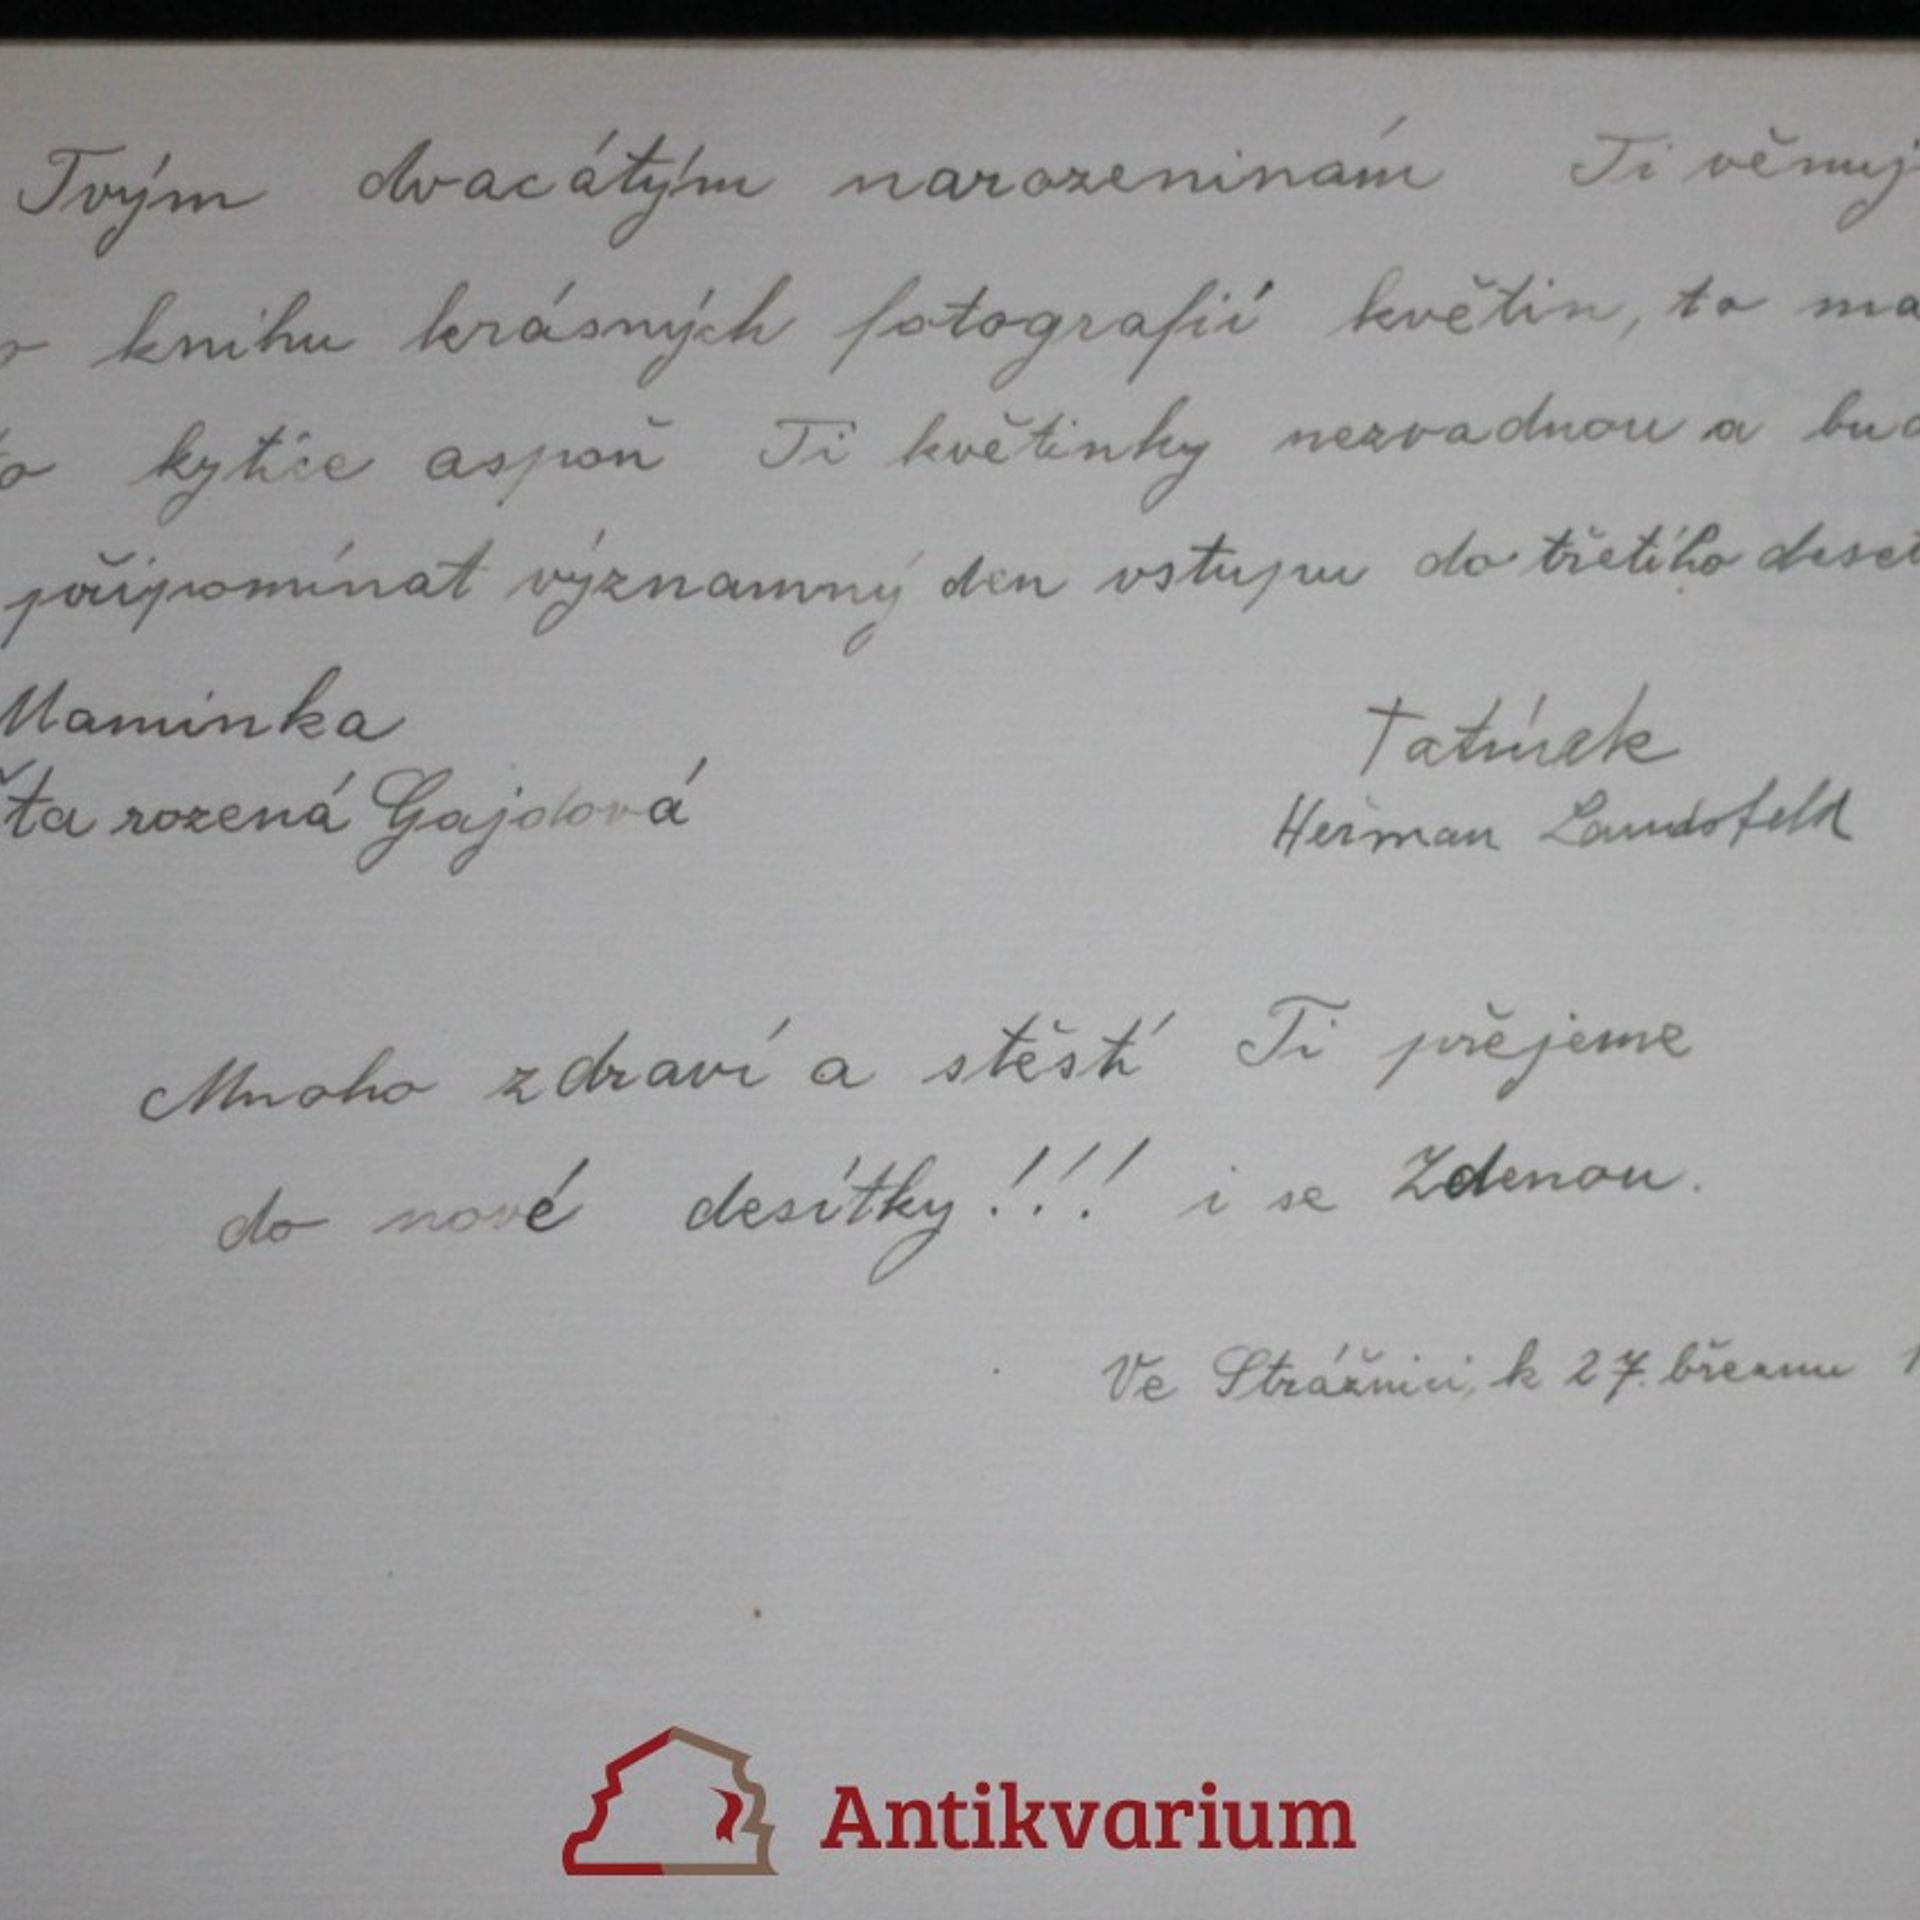 Tvým dvacátým narozeninám Ti věnuj
knihu krásných fotografií květin, to ma
kytice aspoň Ti květinky nezvadnou a bud
připomínat významný den vstupu do třetího deset
Maminka
Tatínek
ta rozená Gajdová
Heřman Landsfeld
Mnoho zdraví a stěstí Ti přejeme
do nové desítky!!! i se Zdenou.
Ve Strážnici, k 27. březnu 1
Antikvarium